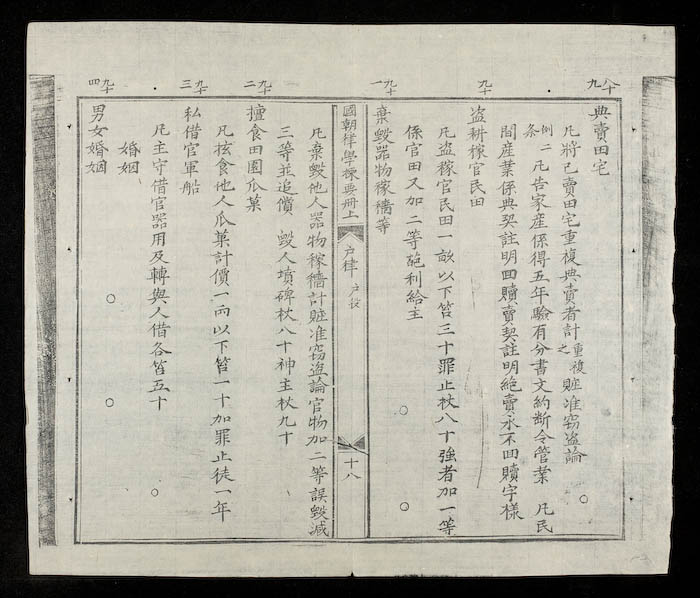 八十九
典賣田宅
凡將已賣田宅重複典賣者計重複之賍准窃盜論
條例一凡告家産係得五年驗有分書文約断令管業 凡民
間産業係典契註明回贖賣契註明絶賣永不回贖字樣
九十
盗耕稼官民田
凡盗稼官民田一畝以下笞三十罪止杖八十強者加一等
係官田又加二等利給主
九十一
棄毀器物稼穡等
國朝律學揀要冊上 户律 户役 十八
凡棄毀他人器物稼穡計賍准窃盗論官物加二等誤毀減
三等並追償 毀人墳碑杖八十神主杖九十
九十二
擅食田園瓜菓
凡食他人瓜菓計價一兩以下笞一十加罪止徒一年
九十三
私借官軍船
凡主守借官器用及轉與人借各笞五十
婚姻
九十四
男女婚姻